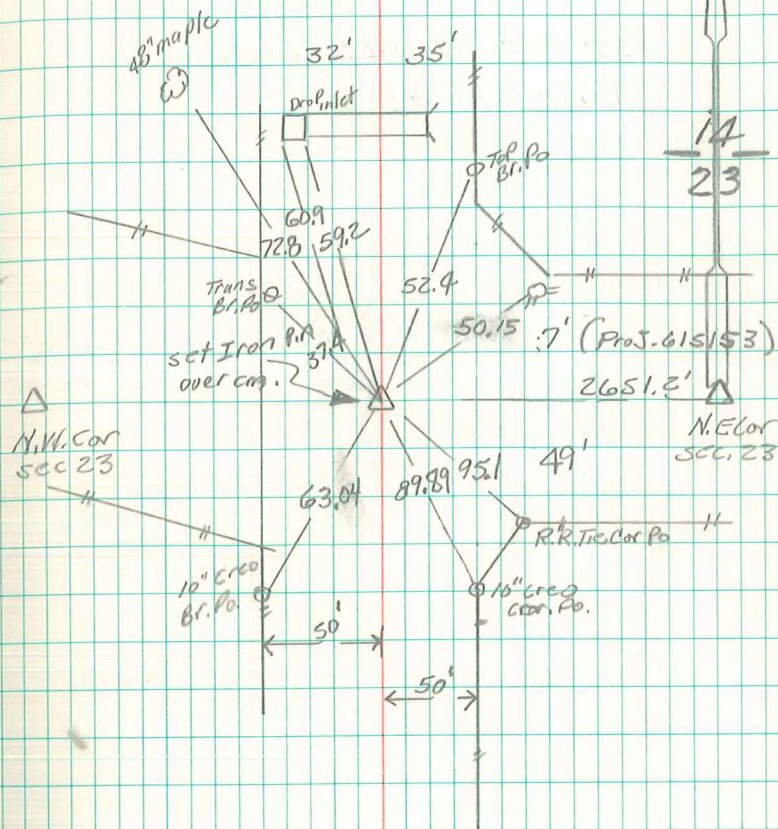 48" maple
32' 35'
Drop inlet
14
23
Top
Br. Po
60.9
72.8 59.2
Trans
Br. Po
52.4
50.15
.7' (Proj. 615153)
set Iron Pin
37.4
over cm.
2651.2'
N.W. Cor
sec 23
N.E Cor
sec. 23
63.04 89.89 95.1 49'
R.R. Tie Cor Po
10" Creo
Br. Po.
10" Creo
Po.
50'
50'